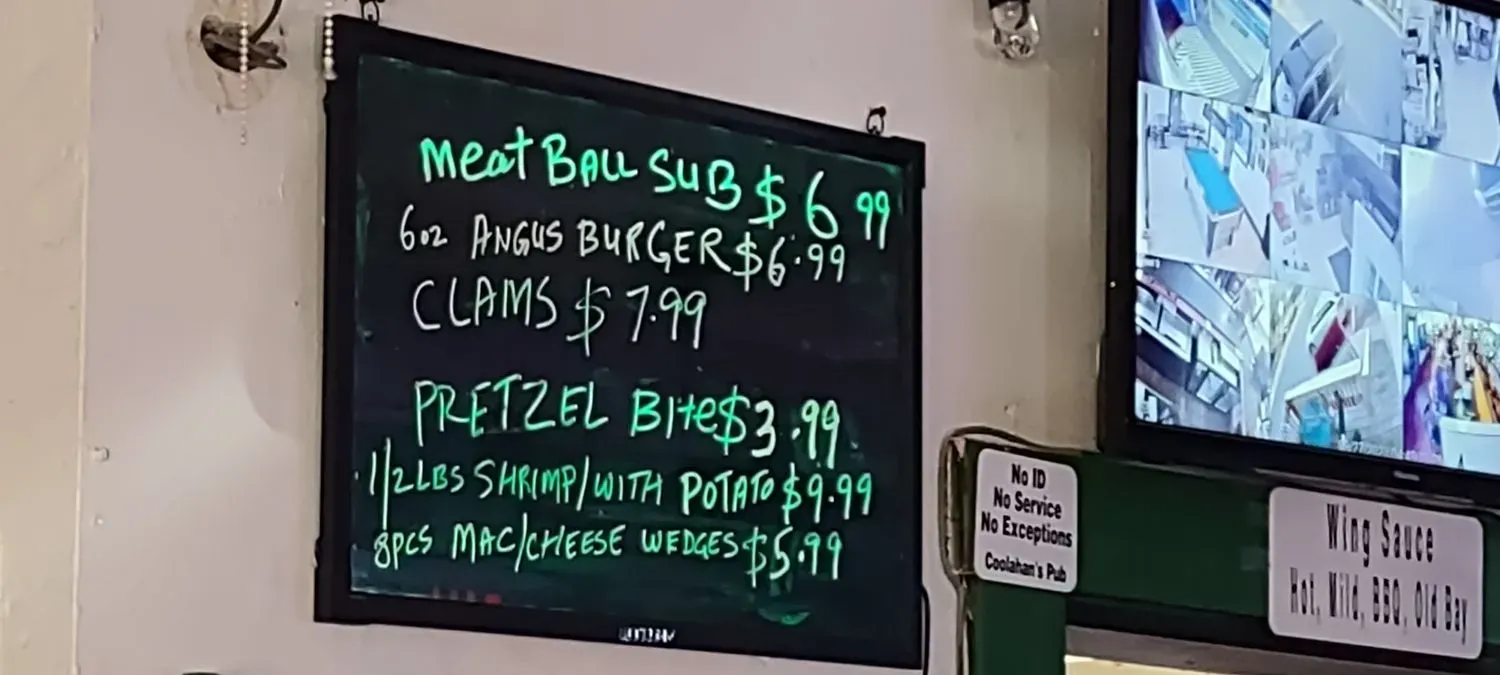 Meat BALL SUB $6 99
6oz ANGUS BURGER $6.99
CLAMS $7.99
PRETZEL Bite $3.99
1/2 LBS SHRIMP/WITH POTATO $9.99
8PCS MAC/CHEESE WEDGES $5.99
No ID
No Service
No Exceptions
Coolahan's Pub
Wing Sauce
Hot, Mild, BBQ, Old Bay